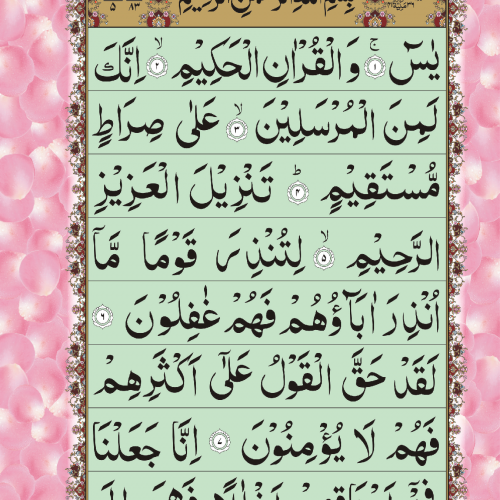 بِسْمِ اللّٰهِ الرَّحْمٰنِ الرَّحِيْمِ
يٰسٓ ۚ ۝۱ وَالْقُرْاٰنِ الْحَكِيْمِ ۙ ۝۲ اِنَّكَ
لَمِنَ الْمُرْسَلِيْنَ ۙ ۝۳ عَلٰى صِرَاطٍ
مُّسْتَقِيْمٍ ؕ ۝۴ تَنْزِيْلَ الْعَزِيْزِ
الرَّحِيْمِ ۙ ۝۵ لِتُنْذِرَ قَوْمًا مَّاۤ
اُنْذِرَ اٰبَآؤُهُمْ فَهُمْ غٰفِلُوْنَ ۝۶
لَقَدْ حَقَّ الْقَوْلُ عَلٰۤى اَكْثَرِهِمْ
فَهُمْ لَا يُؤْمِنُوْنَ ۝۷ اِنَّا جَعَلْنَا